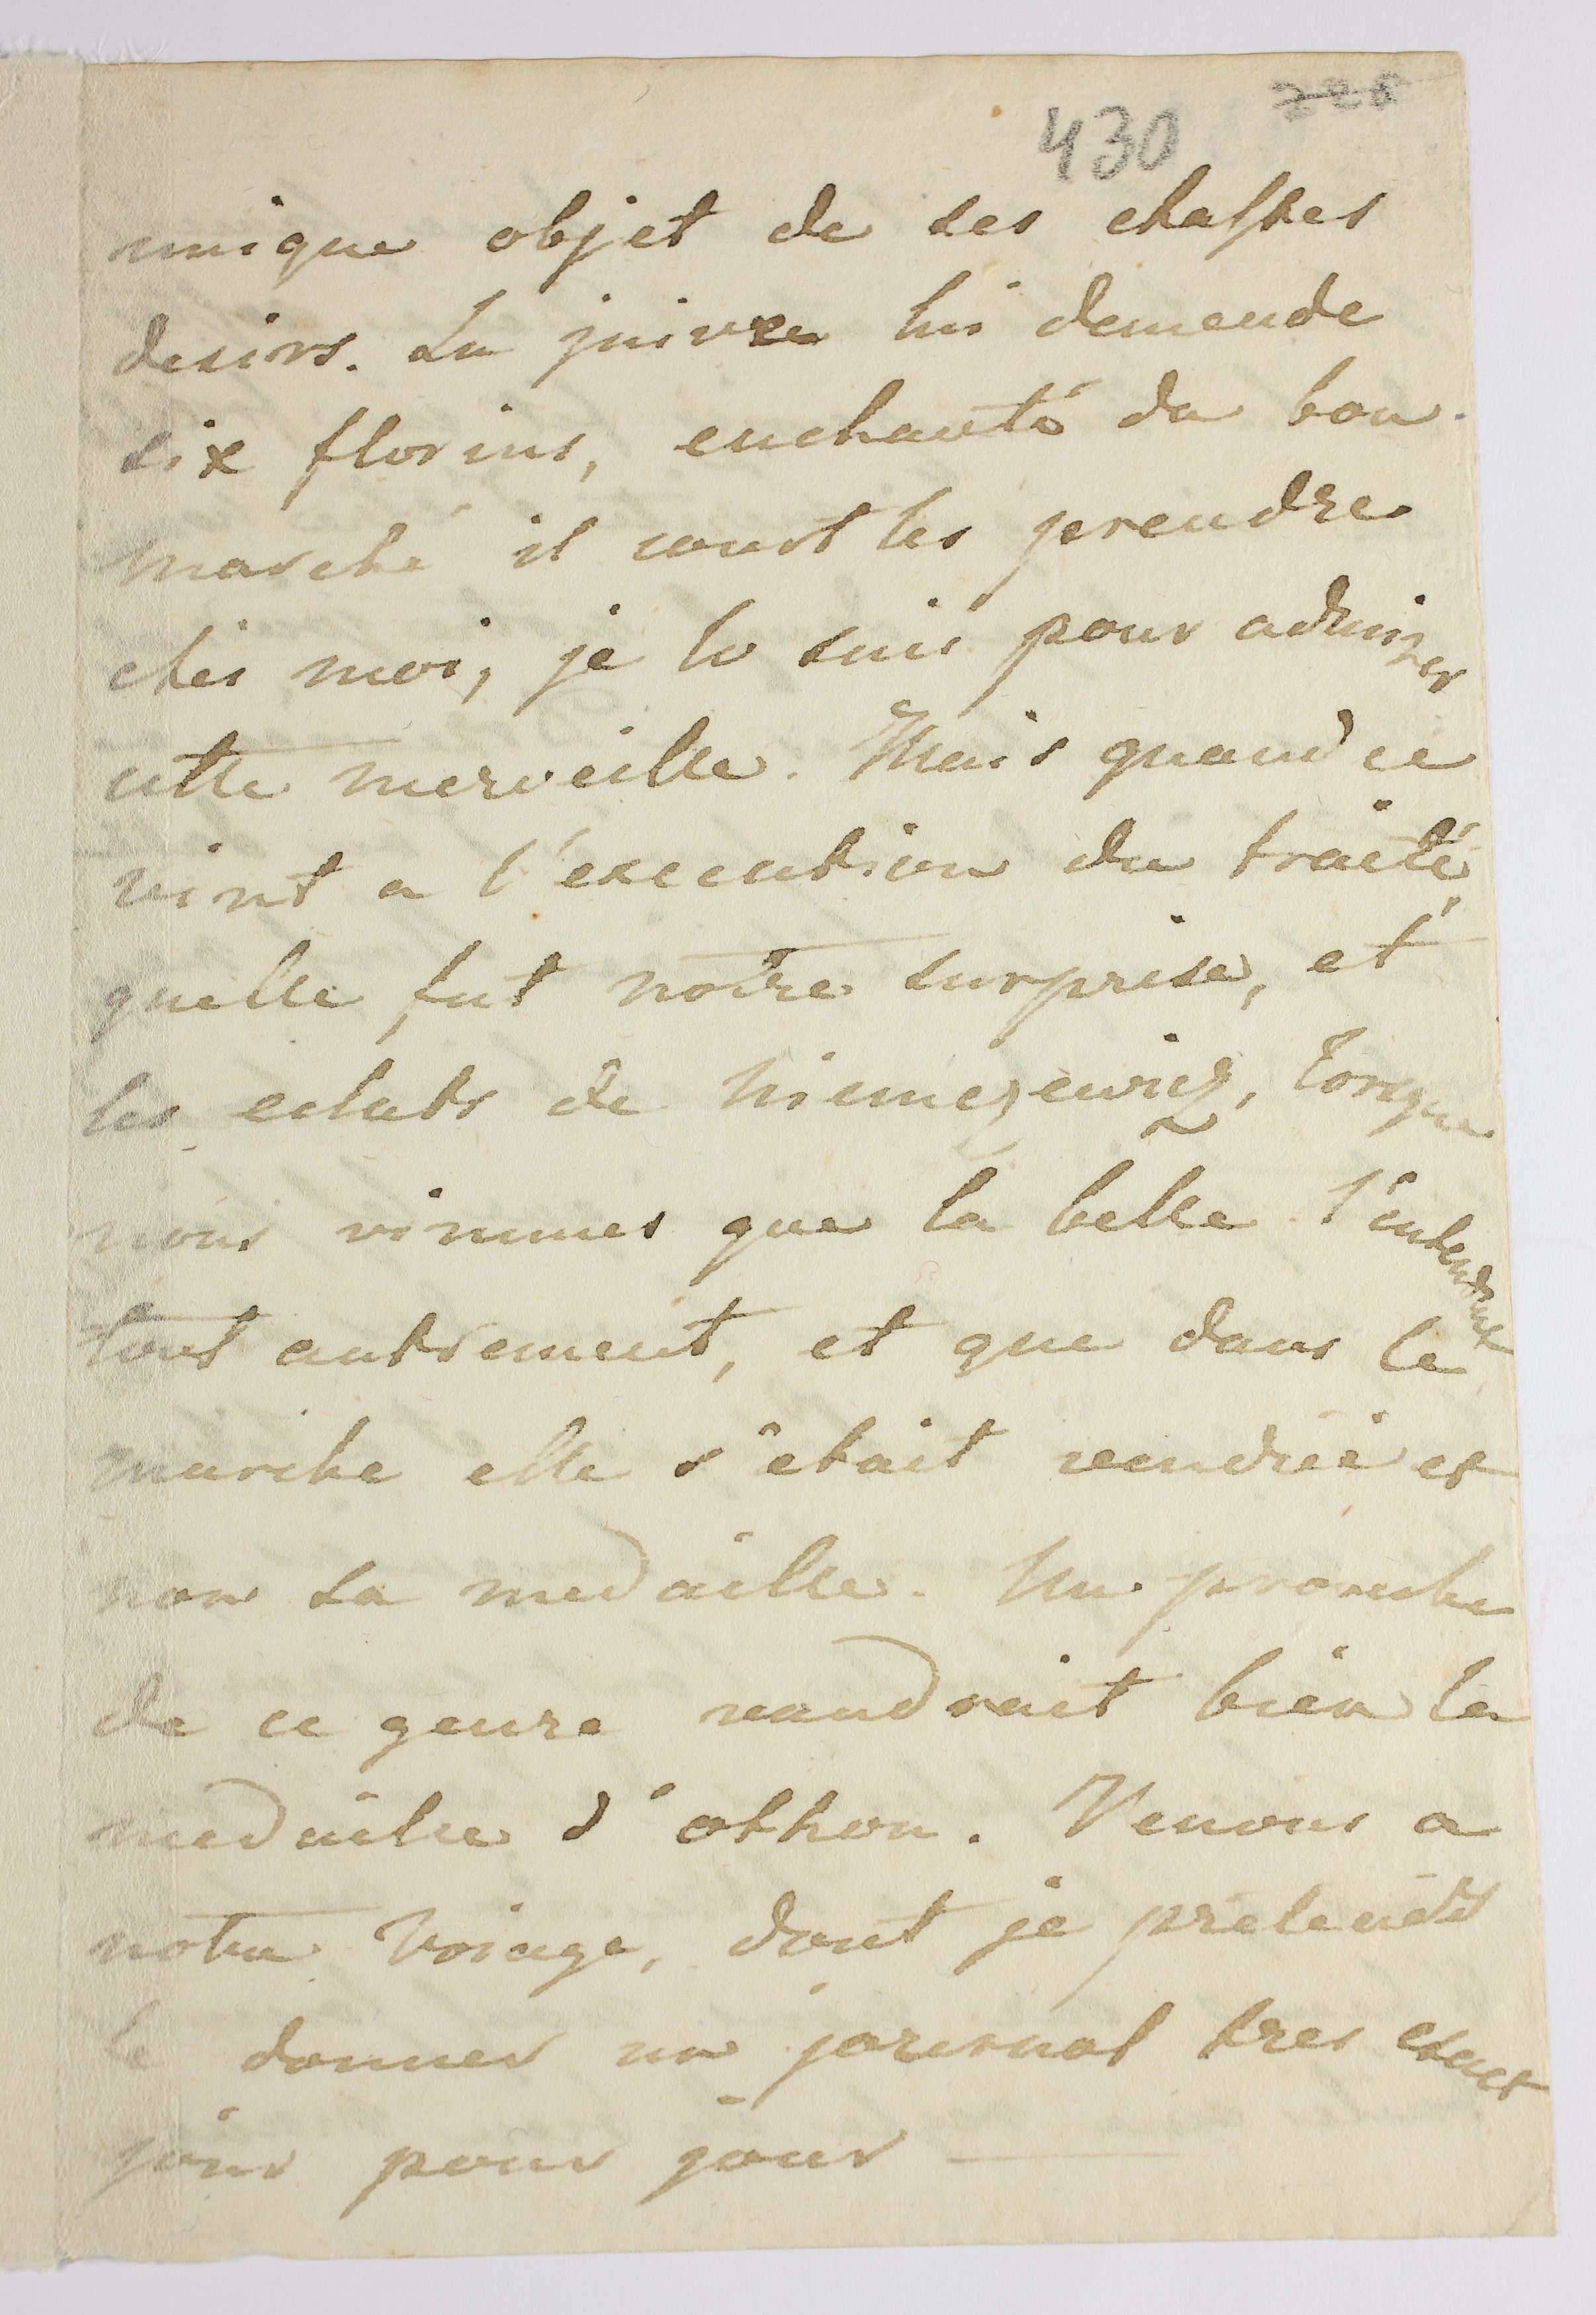 430 228
unique objet de ses chastes
desirs. La juive lui demende
six florins, enchanté du bon
marché il court les prendre
chés moi, je le suis pour admirer
cette merveille. Mais quand ce
vint a l'execution du traité,
quelle fut notre surprise, et
les eclats de Niemcewicz, lorsque
nous vimmes que la belle l'entendait
tout autrement, et que dans le
marche elle s'était vendue et
non sa medaille. Un
de ce genre vaudrait bien la
medaille d'othon. Venons a
notre voiage, dont je prétends
te donner un journal tres exact
jour pour jour —